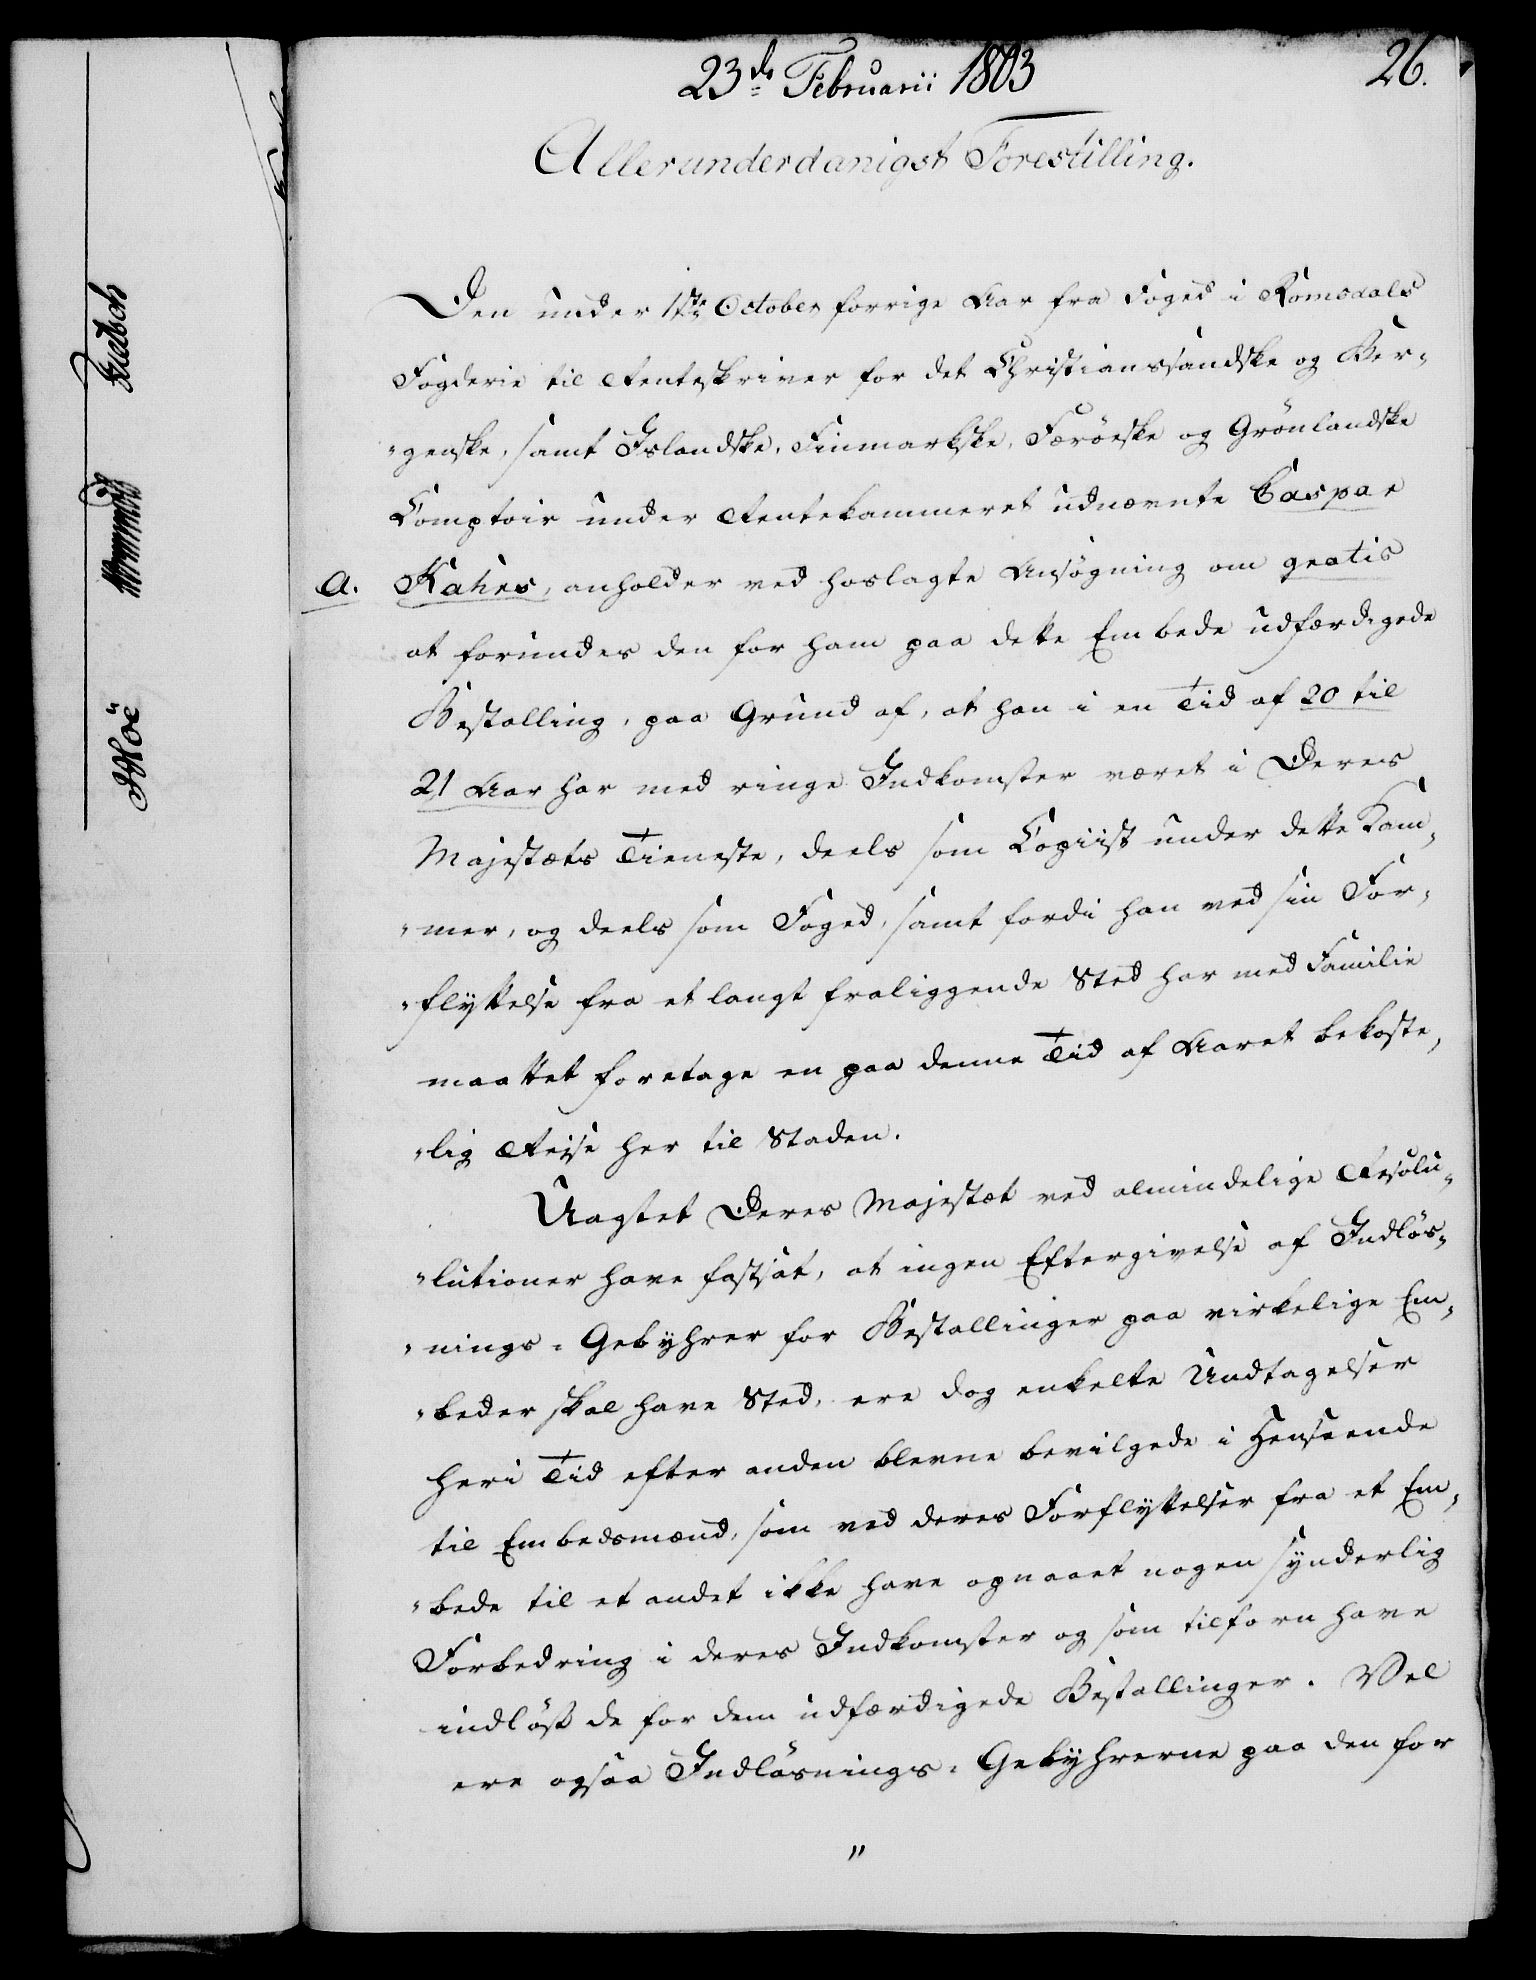 23de Februarii 1803
26.
Allerunderdanigst Forestilling.
Den under 1ste October forrige Aar fra Foged i Romsdals
Fogderie til Renteskriver for det Christianssandske og Ber-
"genske, samt Islandske, Finmarkske, Færöeske og Grönlandske
Comptoir under Rentekammeret udnævnte Caspar
a. Kahrs, anholder ved hoslagte Ansögning om gratis
at forundes den for ham paa dette Embede udfærdigede
Bestalling, paa Grund af, at han i en Tid af 20 til
21 Aar har med ringe Indkomster været i Deres
Majestæts Tieneste, deels som Copiist under dette Kam-
"mer, og deels som Foged, samt fordi han ved sin For-
"flyttelse fra et langt fraliggende Sted har med Familie
maattet foretage en paa denne Tid af Aaret bekoste-
"lig Reise her til Staden.
Uagtet Deres Majestæt ved almindelige Resolu-
"lutioner have fastsat, at ingen Eftergivelse af Indlös-
"nings-Gebyhrer for Bestallinger paa virkelige Em-
"beder skal have Sted, ere dog enkelte Undtagelser
heri Tid efter anden blevne bevilgede i Henseende
til Embedsmænd, som ved deres Forflyttelser fra et Em-
"bede til et andet ikke have opnaaet nogen synderlig
Forbedring i deres Indkomster og som tilforn have
indlöst de for dem udfærdigede Bestallinger. Vel
ere ogsaa Indlösnings-Gebyhrerne paa den for
"